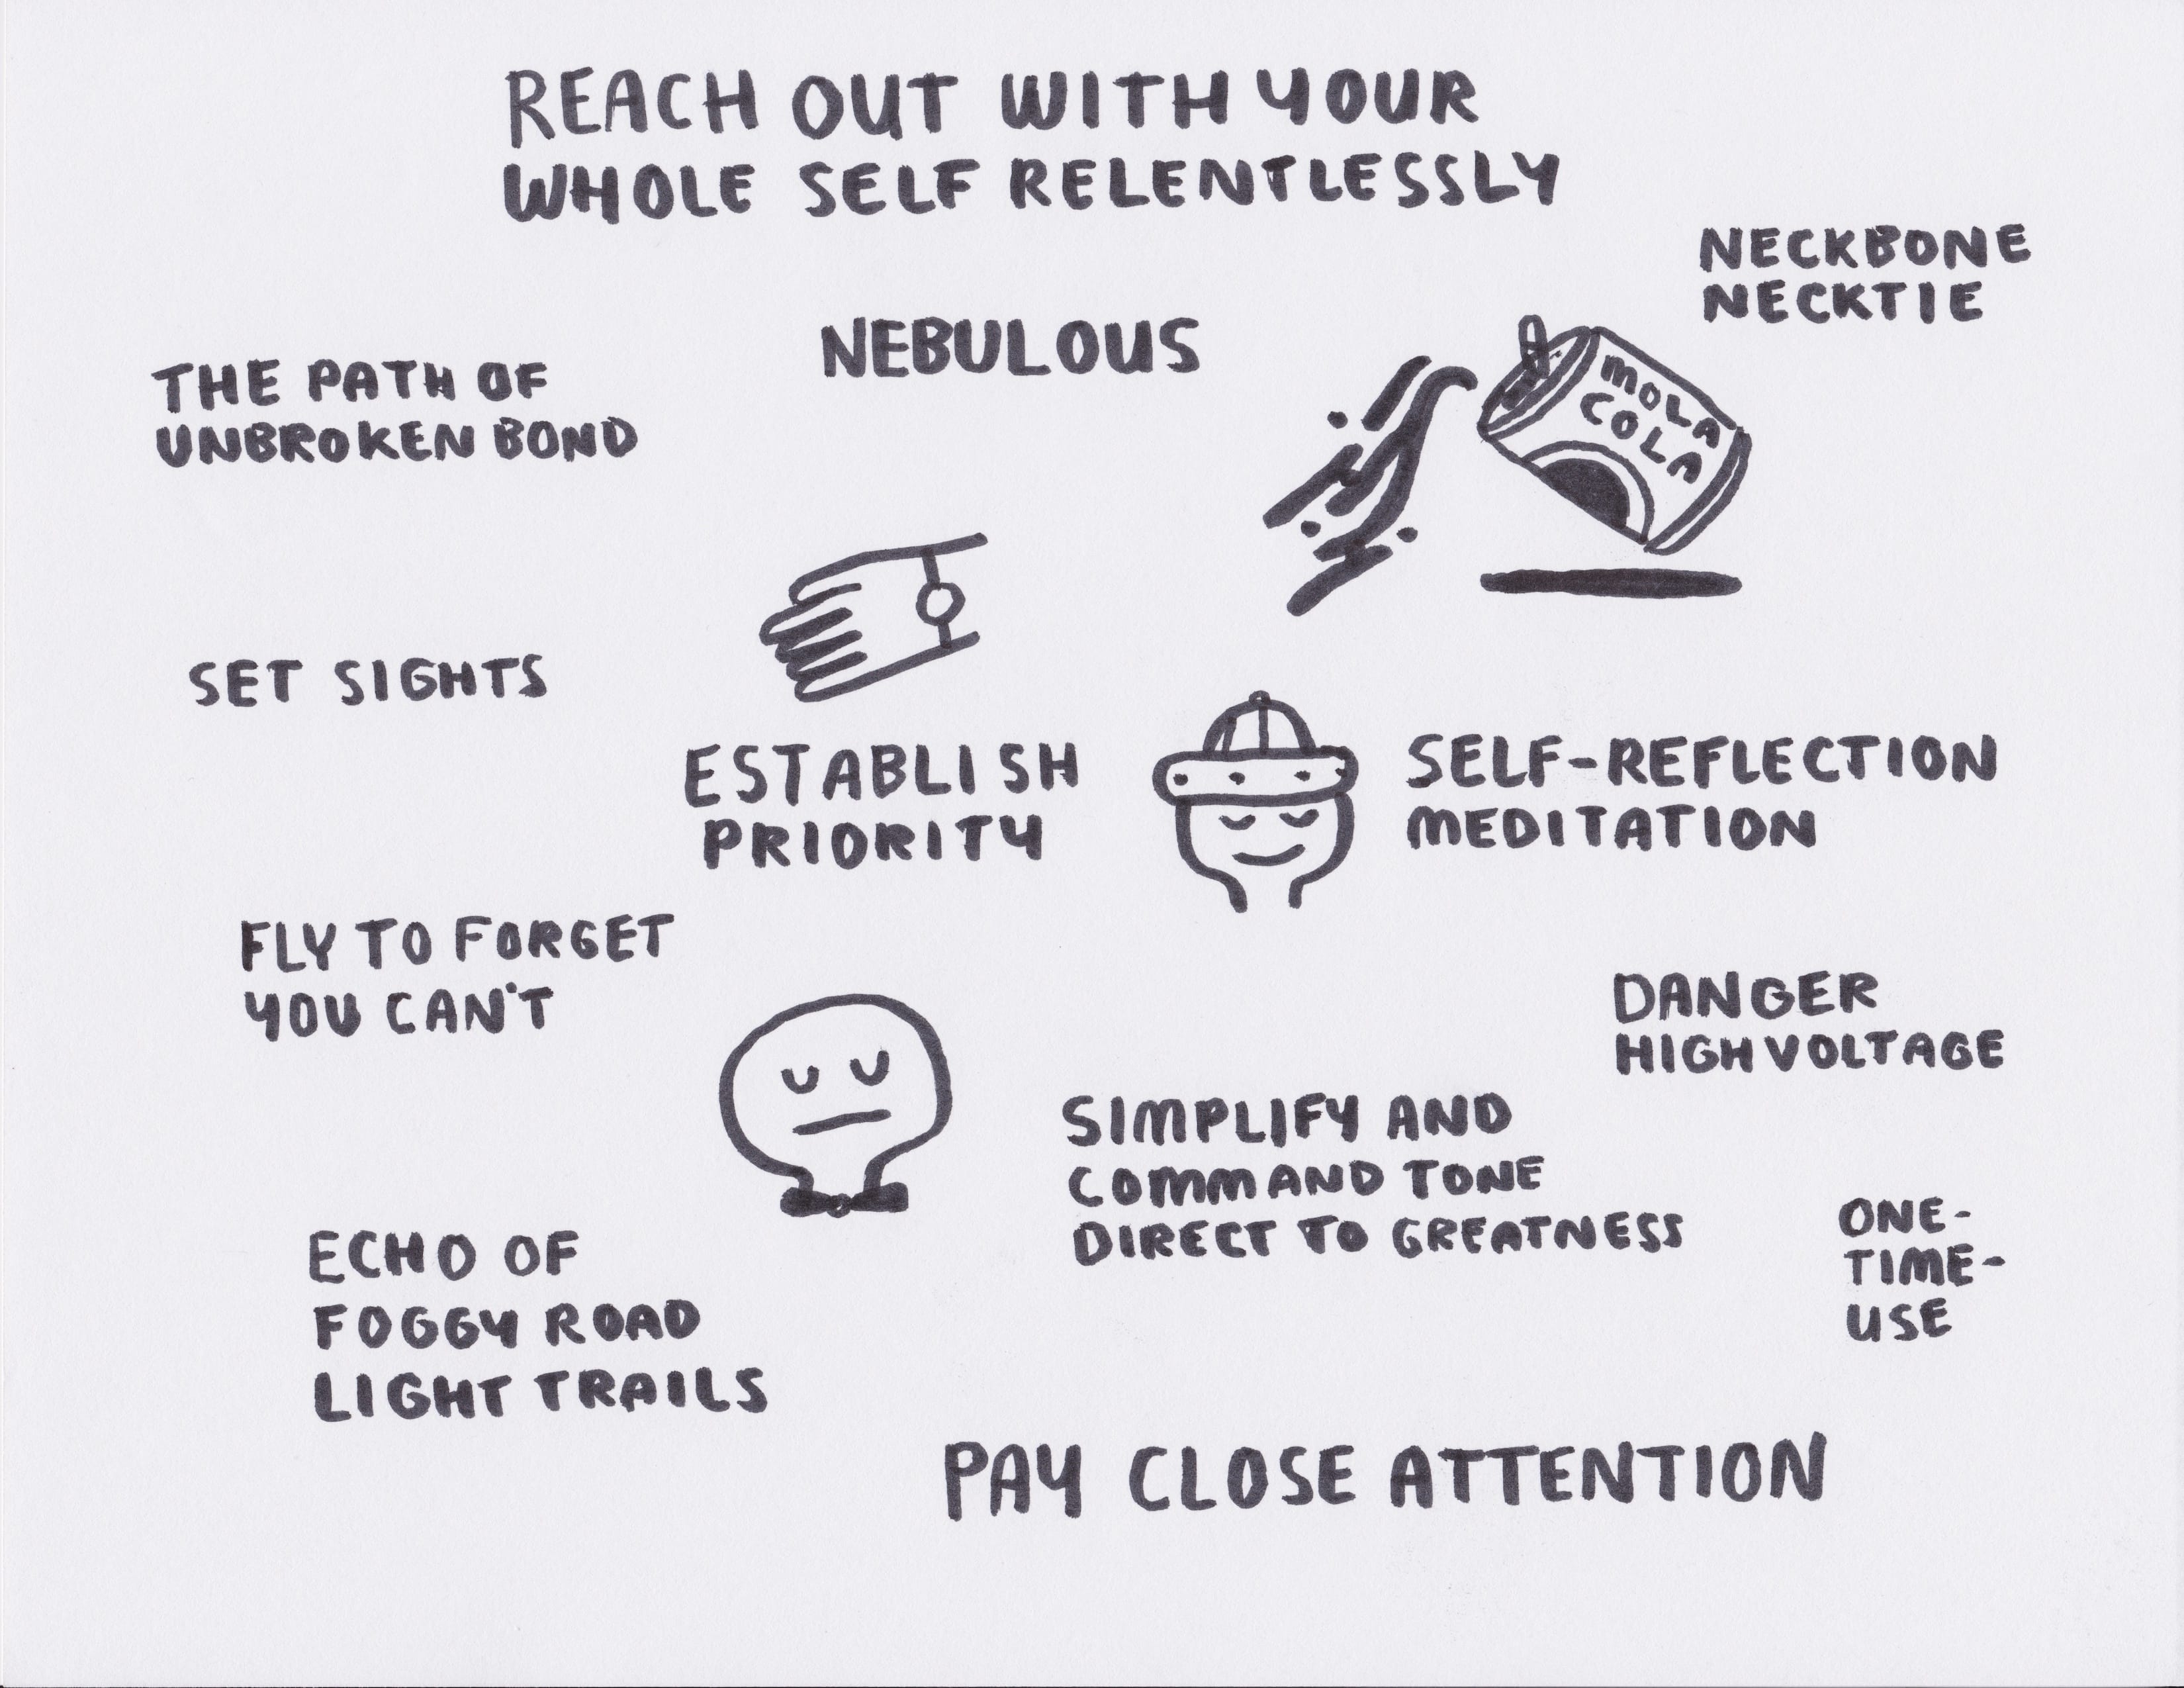 REACH OUT WITH YOUR
WHOLE SELF RELENTLESSLY
NECKBONE
NECKTIE
NEBULOUS
THE PATH OF
UNBROKEN BOND
MOLA
COLA
SET SIGHTS
ESTABLISH
PRIORITY
SELF-REFLECTION
MEDITATION
FLY TO FORGET
YOU CAN'T
DANGER
HIGH VOLTAGE
SIMPLIFY AND
COMMAND TONE
DIRECT TO GREATNESS
ONE-
TIME-
USE
ECHO OF
FOGGY ROAD
LIGHT TRAILS
PAY CLOSE ATTENTION